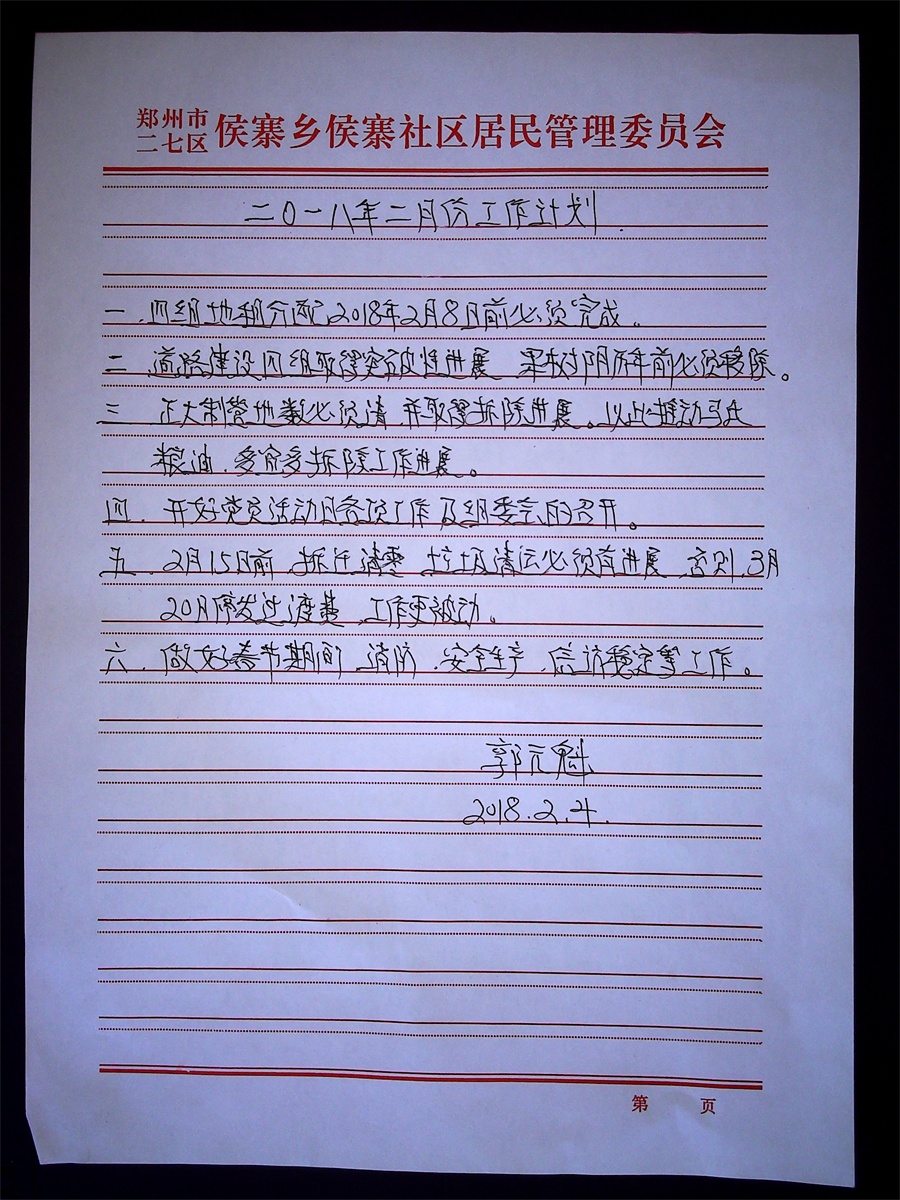 郑州市
二七区 侯寨乡侯寨社区居民管理委员会
二0一八年二月份工作计划
一.四组地租分配2018年2月8日前必须完成。
二.道路建设四组取得突破性进展.果树阴历年前必须移除。
三.正大制管地数必须清.并取得拆除进展。以此推动马氏
粮油.多俞多拆除工作进展。
四.开好党员活动日各项工作及组委会的召开。
五.2月15日前.拆迁清零.垃圾清运必须有进展.否则.3月
20月停发过渡费.工作更被动。
六.做好春节期间.消防.安全生产.信访稳定等工作。
郭元魁
2018.2.4.
第 页